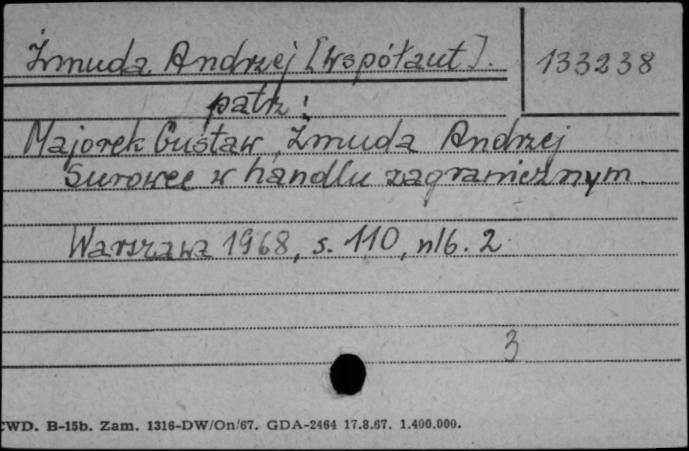 Żmuda Andrzej [współaut].
133238
patrz:
Majorek Gustaw, Żmuda Andrzej
Surowce w handlu zagranicznym.
Warszawa 1968, s. 110, nlb. 2
3
CWD. B-15b. Zam. 1316-DW/On/67. GDA-2464 17.8.67. 1.400.000.